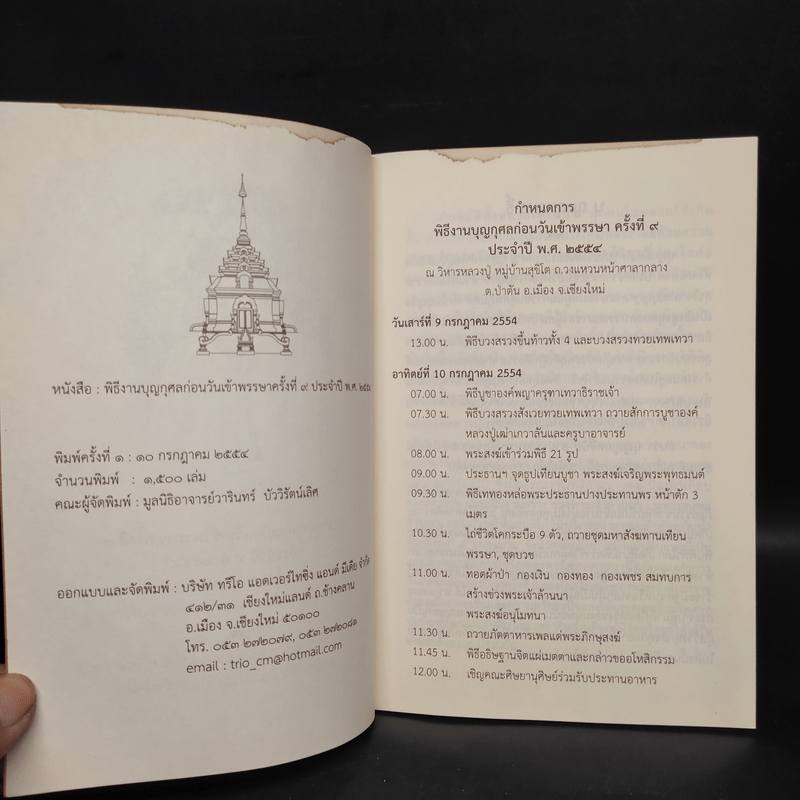 หนังสือ : พิธีงานบุญกุศลก่อนวันเข้าพรรษาครั้งที่ ๙ ประจำปี พ.ศ.
พิมพ์ครั้งที่ ๑ : ๑๐ กรกฎาคม ๒๕๕๔
จำนวนพิมพ์ : ๑,๕๐๐ เล่ม
คณะผู้จัดพิมพ์ : มูลนิธิอาจารย์วารินทร์ บัววิรัตน์เลิศ
ออกแบบและจัดพิมพ์ : บริษัท ทรีโอ แอดเวอร์ไทซิ่ง แอนด์ มีเดีย จำกัด
๔๑๒/๓๑ เชียงใหม่แลนด์ ถ.ช้างคลาน
อ.เมือง จ.เชียงใหม่ ๕๐๑๐๐
โทร. ๐๕๓ ๒๗๒๐๗๙, ๐๕๓ ๒๗๒๐๘๑
email : trio_cm@hotmail.com
กำหนดการ
พิธีงานบุญกุศลก่อนวันเข้าพรรษา ครั้งที่ ๙
ประจำปี พ.ศ. ๒๕๕๔
ณ วิหารหลวงปู่ หมู่บ้านสุขิโต ถ.วงแหวนหน้าศาลากลาง
ต.ป่าตัน อ.เมือง จ.เชียงใหม่
วันเสาร์ที่ 9 กรกฎาคม 2554
13.00 น. พิธีบวงสรวงขึ้นท้าวทั้ง 4 และบวงสรวงทวยเทพเทวา
อาทิตย์ที่ 10 กรกฎาคม 2554
07.00 น. พิธีบูชาองค์พญาครุฑาเทวาธิราชเจ้า
07.30 น. พิธีบวงสรวงสังเวยทวยเทพเทวา ถวายสักการบูชาองค์
หลวงปู่เฒ่าเกวาลันและครูบาอาจารย์
08.00 น. พระสงฆ์เข้าร่วมพิธี 21 รูป
09.00 น. ประธานฯ จุดธูปเทียนบูชา พระสงฆ์เจริญพระพุทธมนต์
09.30 น. พิธีเททองหล่อพระประธานปางประทานพร หน้าตัก 3
เมตร
10.30 น. ไถ่ชีวิตโคกระบือ 9 ตัว, ถวายชุดมหาสังฆทานเทียน
พรรษา, ชุดบวช
11.00 น. ทอดผ้าป่า กองเงิน กองทอง กองเพชร สมทบการ
สร้างช่วงพระเจ้าล้านนา
พระสงฆ์อนุโมทนา
11.30 น. ถวายภัตตาหารเพลแด่พระภิกษุสงฆ์
11.45 น. พิธีอธิษฐานจิตแผ่เมตตาและกล่าวขออโหสิกรรม
12.00 น. เชิญคณะศิษยานุศิษย์ร่วมรับประทานอาหาร